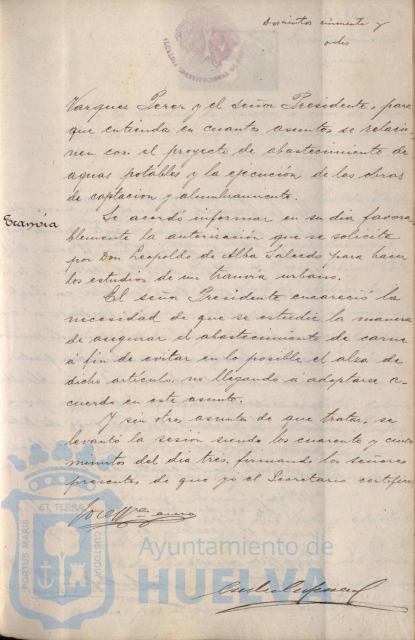 Doscientos cincuenta y
ocho
ALCALDIA CONSTITUCIONAL DE
Vazquez Perez y el Señor Presidente, para
que entienda en cuantos asuntos se relacio-
nen con el proyecto de abastecimiento de
aguas potables y la ejecución de las obras
de captacion y alumbramiento.
Tranvia
Se acordó informar en su dia favora-
blemente la autorización que se solicita
por Don Leopoldo de Alba Salcedo para hacer
los estudios de un tranvia urbano.
El señor Presidente encareció la
necesidad de que se estudie la manera
de asegurar el abastecimiento de carne
á fin de evitar en lo posible el alza de
dicho artículo, no llegando á adoptarse a-
cuerdo en este asunto.
Y sin otros asuntos de que tratar, se
levantó la sesión siendo las cuarenta y cinco
minutos del dia tres, firmando los señores
presentes, de que yo el Secretario certifico
PORTUS MARIS ET TERRAE CUSTODIA
Ayuntamiento de
HUELVA